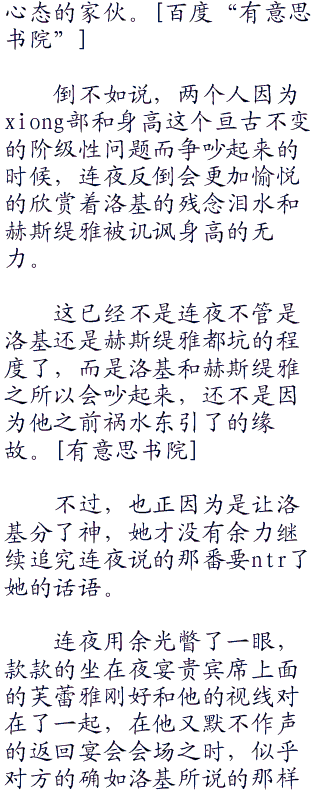 心态的家伙。[百度“有意思
书院”]
倒不如说，两个人因为
xiong部和身高这个亘古不变
的阶级性问题而争吵起来的
时候，连夜反倒会更加愉悦
的欣赏着洛基的残念泪水和
赫斯缇雅被讥讽身高的无
力。
这已经不是连夜不管是
洛基还是赫斯缇雅都坑的程
度了，而是洛基和赫斯缇雅
之所以会吵起来，还不是因
为他之前祸水东引了的缘
故。[有意思书院]
不过，也正因为是让洛
基分了神，她才没有余力继
续追究连夜说的那番要ntr了
她的话语。
连夜用余光瞥了一眼，
款款的坐在夜宴贵宾席上面
的芙蕾雅刚好和他的视线对
在了一起，在他又默不作声
的返回宴会会场之时，似乎
对方的确如洛基所说的那样